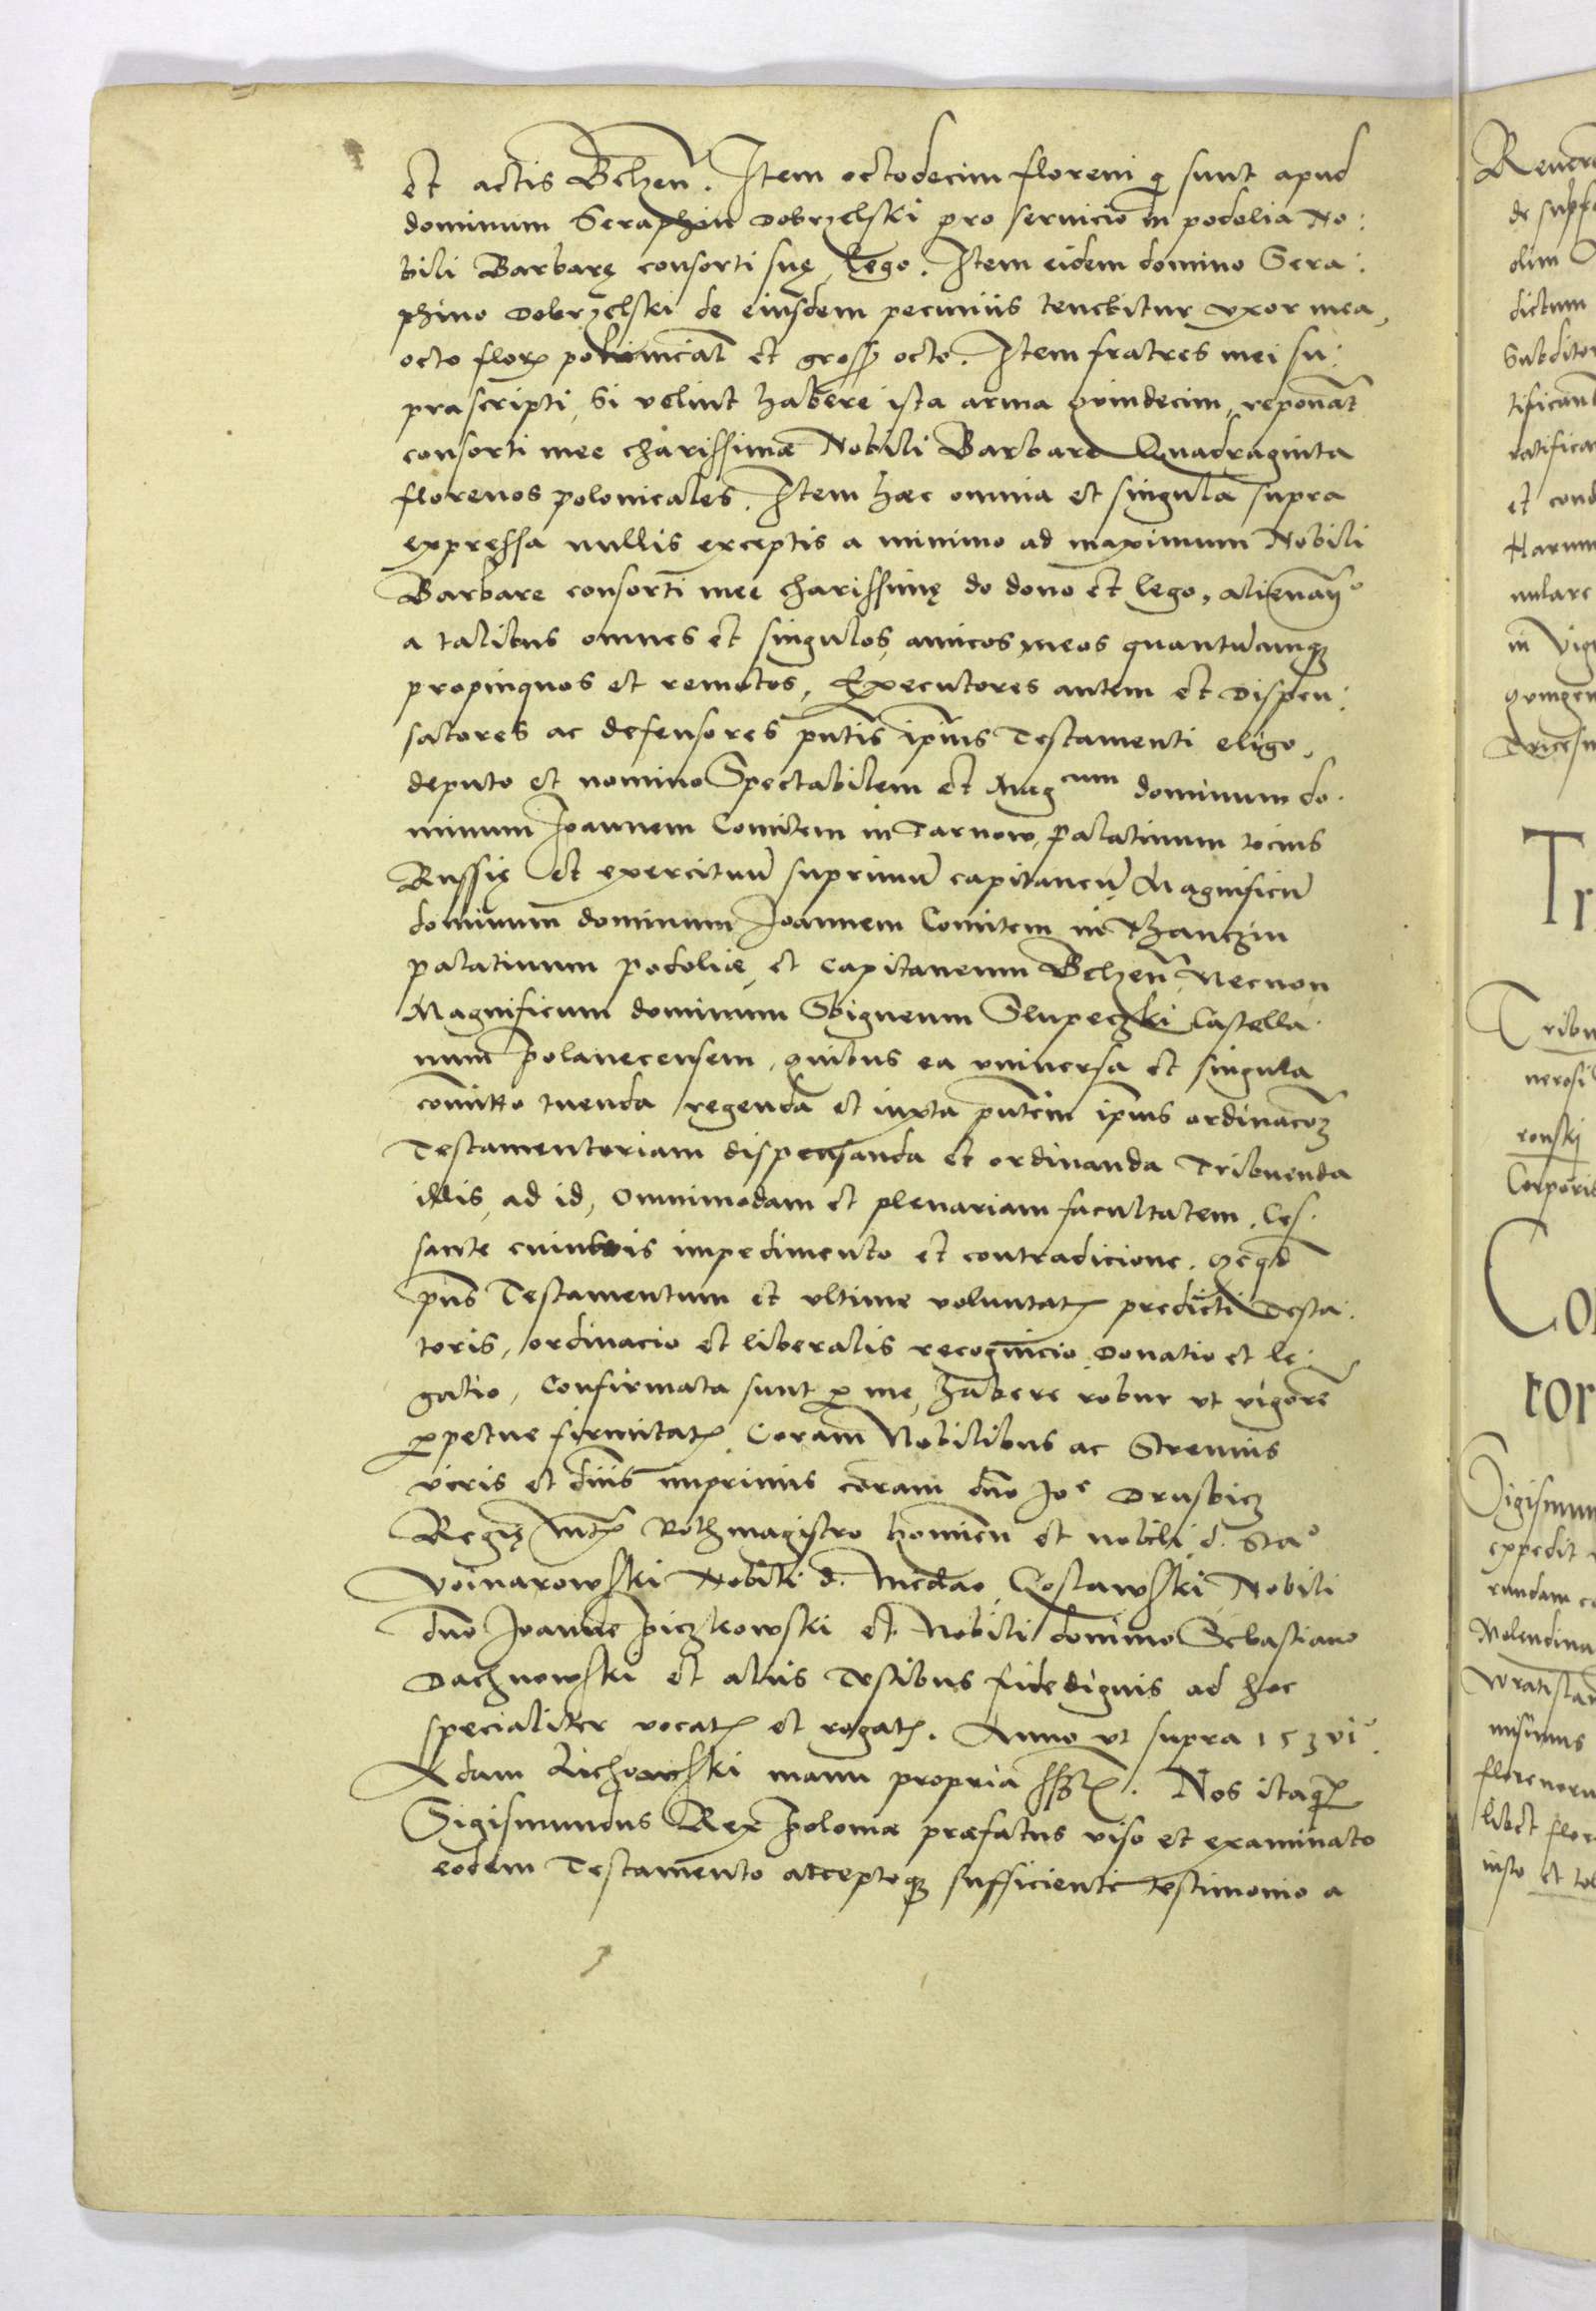 et actis Belzen̄. Item octodecim floreni q̄ sunt apud
dominum Seraphin Dobrzelski pro seruicio in podolia No:
bili Barbarę consorti suę, lego. Item eidem domino Sera:
phino Dobrzelski de eiusdem pecuniis tenebitur vxor mea,
octo florꝭ polonical̄ et grossꝭ octo. Item fratres mei su:
prascripti, si velint habere ista arma quindecim, reponāt
consorti mee charissimæ Nobili Barbare Quadraginta
florenos polonicales. Item hæc omnia et singula supra
expressa nullis exceptis a minimo ad maximum Nobili
Barbare consorti mee charissimę do dono et lego, alienan̄o
a talibus omnes et singulos, amicos meos quantūcunqꝫ
propinquos et remotos, Executores autem et Dispen:
satores ac defensores pn̄tis ip̄ius Testamenti eligo,
deputo et nomino Spectabilem et Magcum dominum do:
minum Joannem Comitem in Tarnow, Palatinum tocius
Russię et exercituū suprimū capitaneū, Magnificū
dominum dominum Joannem Comitem in Thanczin
palatinum podoliæ, et Capitaneum Belzen̄ Necnon
Magnificum dominum Sbigneum Slupeczki Castella:
num Polanecensem, quibus ea vniuersa et singula
com̄itto tuenda regenda et iuxta pn̄tem ip̄ius ordinacōeꝫ
Testamentoriam dispensanda et ordinanda Tribuenda
illis, ad id, Omnimodam et plenariam facultatem, Ces:
sante cuiusuis impedimento et contradicione.
pn̄s Testamentum et vltime voluntatꝭ predicti Testa:
toris, ordinacio et liberalis recognicio Donatio et le:
gatio, Confirmata sunt ꝑ me, habere robur vt vigorē
ꝑpetue firmitatꝭ Coram Nobilibus ac Strenuis
viris et dn̄is inprimis coram dn̄o Joe Drusbicz
Regię Mtꝭ Rothmagistro et nobili d. Stao
Voinarowski Nobili d. Coslawski Nobili
dn̄o Joanne Piczkowski et Nobili domino Sebastiano
Dachnowski et aliis Testibus fide dignis ad hoc
specialiter vocatꝭ et rogatꝭ. Anno vt supra 153vio.
Adam manu propria sstꝭ. Nos itaqꝫ
Sigismundus Rex Poloniæ præfatus viso et examinato
eodem Testamento acceptoqꝫ sufficienti testimonio a